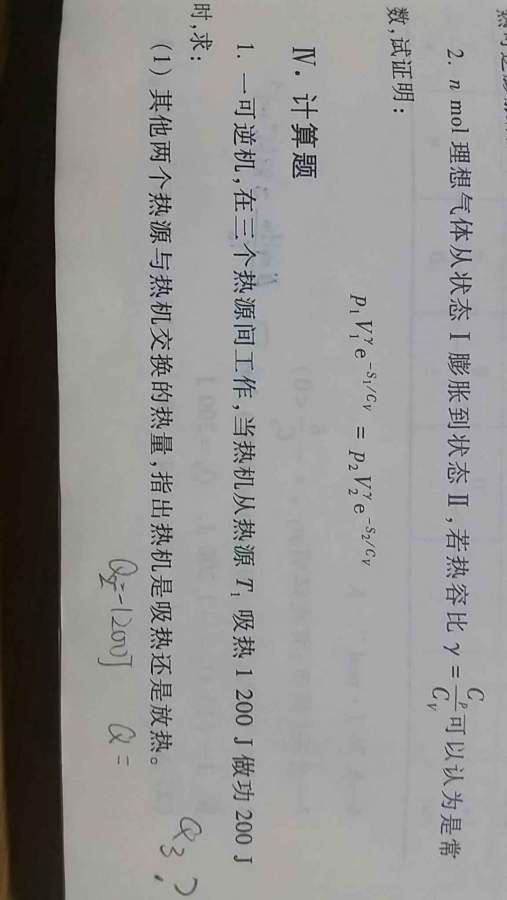 2. n mol 理想气体从状态 Ⅰ 膨胀到状态 Ⅱ,若热容比 γ = C_p/C_V 可以认为是常
数,试证明:
p₁V₁^γ e^(-S₁/C_V) = p₂V₂^γ e^(-S₂/C_V)
Ⅳ. 计算题
1. 一可逆机,在三个热源间工作,当热机从热源 T₁ 吸热 1 200 J 做功 200 J
时,求:
(1) 其他两个热源与热机交换的热量,指出热机是吸热还是放热。
Q₂=-1200J Q=
Q₃